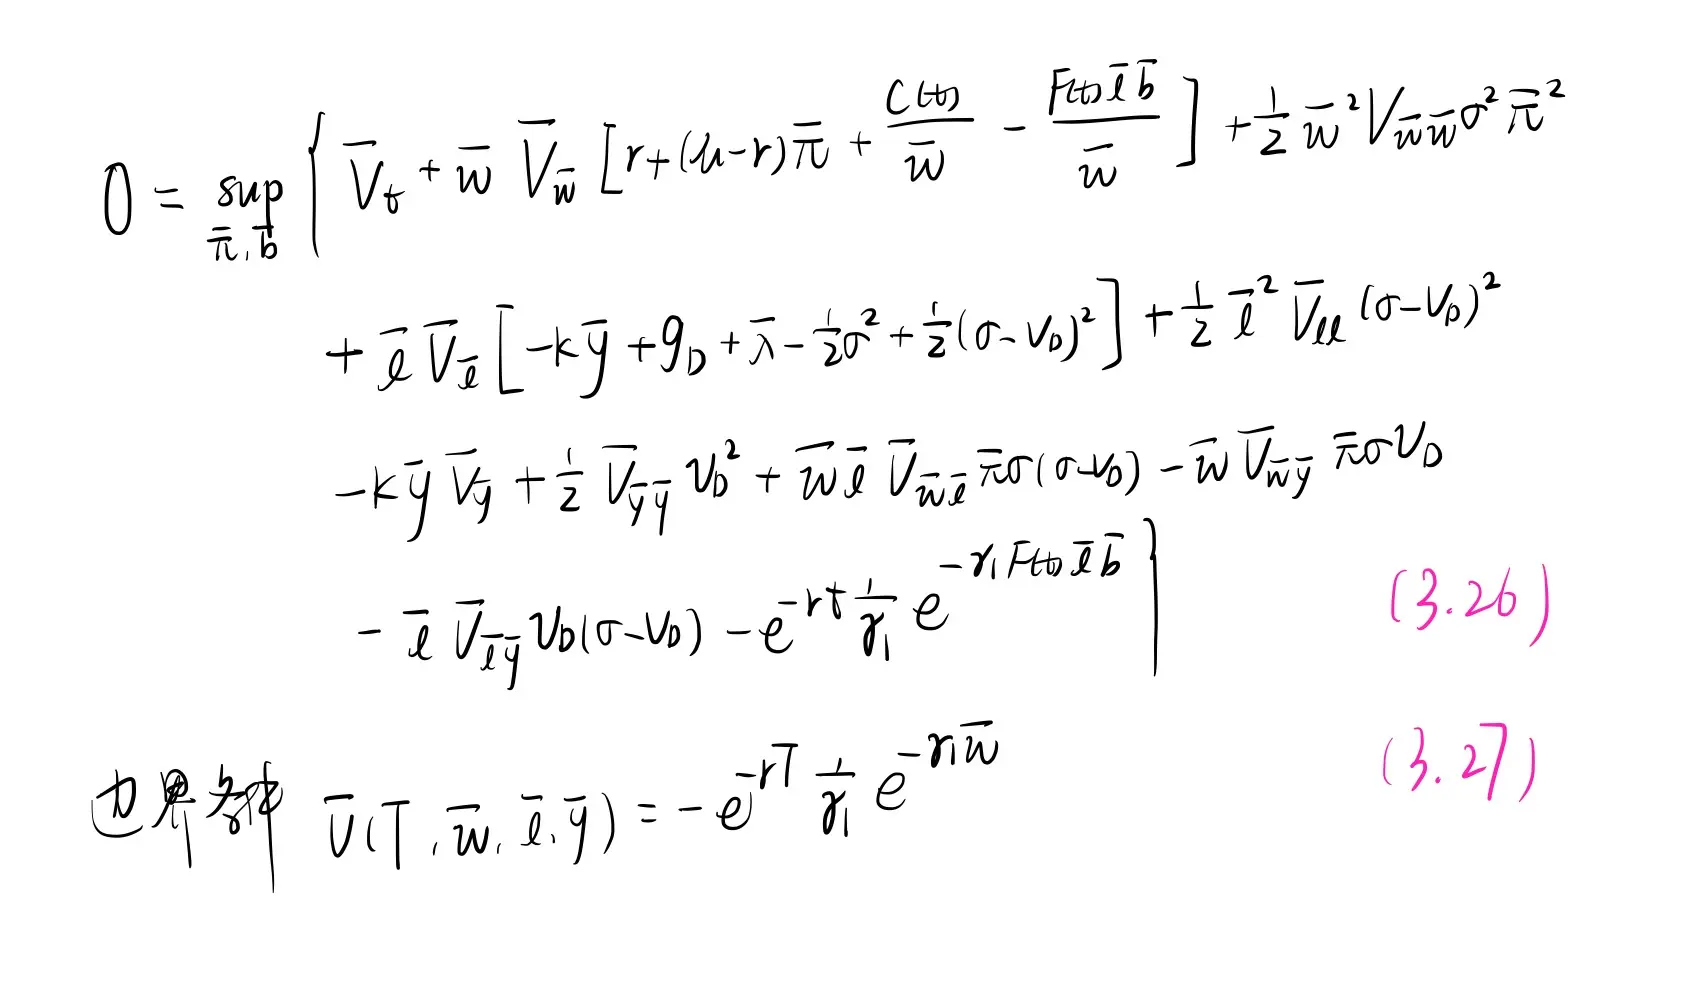 0 = sup_{π̄, b̄} { V̄_t + w̄ V̄_w̄ [ r + (μ-r)π̄ + C(t)/w̄ - F(t) l̄ b̄/w̄ ] + ½ w̄² V_{w̄w̄} σ² π̄²
+ l̄ V̄_l̄ [ -kȳ + g_D + λ̄ - ½σ² + ½(σ-ν_D)² ] + ½ l̄² V̄_{ll} (σ-ν_D)²
-kȳ V̄_ȳ + ½ V̄_{ȳȳ} ν_D² + w̄ l̄ V̄_{w̄l̄} π̄σ(σ-ν_D) - w̄ V̄_{w̄ȳ} π̄σν_D
- l̄ V̄_{l̄ȳ} ν_D(σ-ν_D) - e^{-rt} 1/γ₁ e^{-γ₁F(t) l̄ b̄} } (3.26)
边界条件 V̄(T, w̄, l̄, ȳ) = -e^{-rT} 1/γ₁ e^{-γ₁w̄} (3.27)